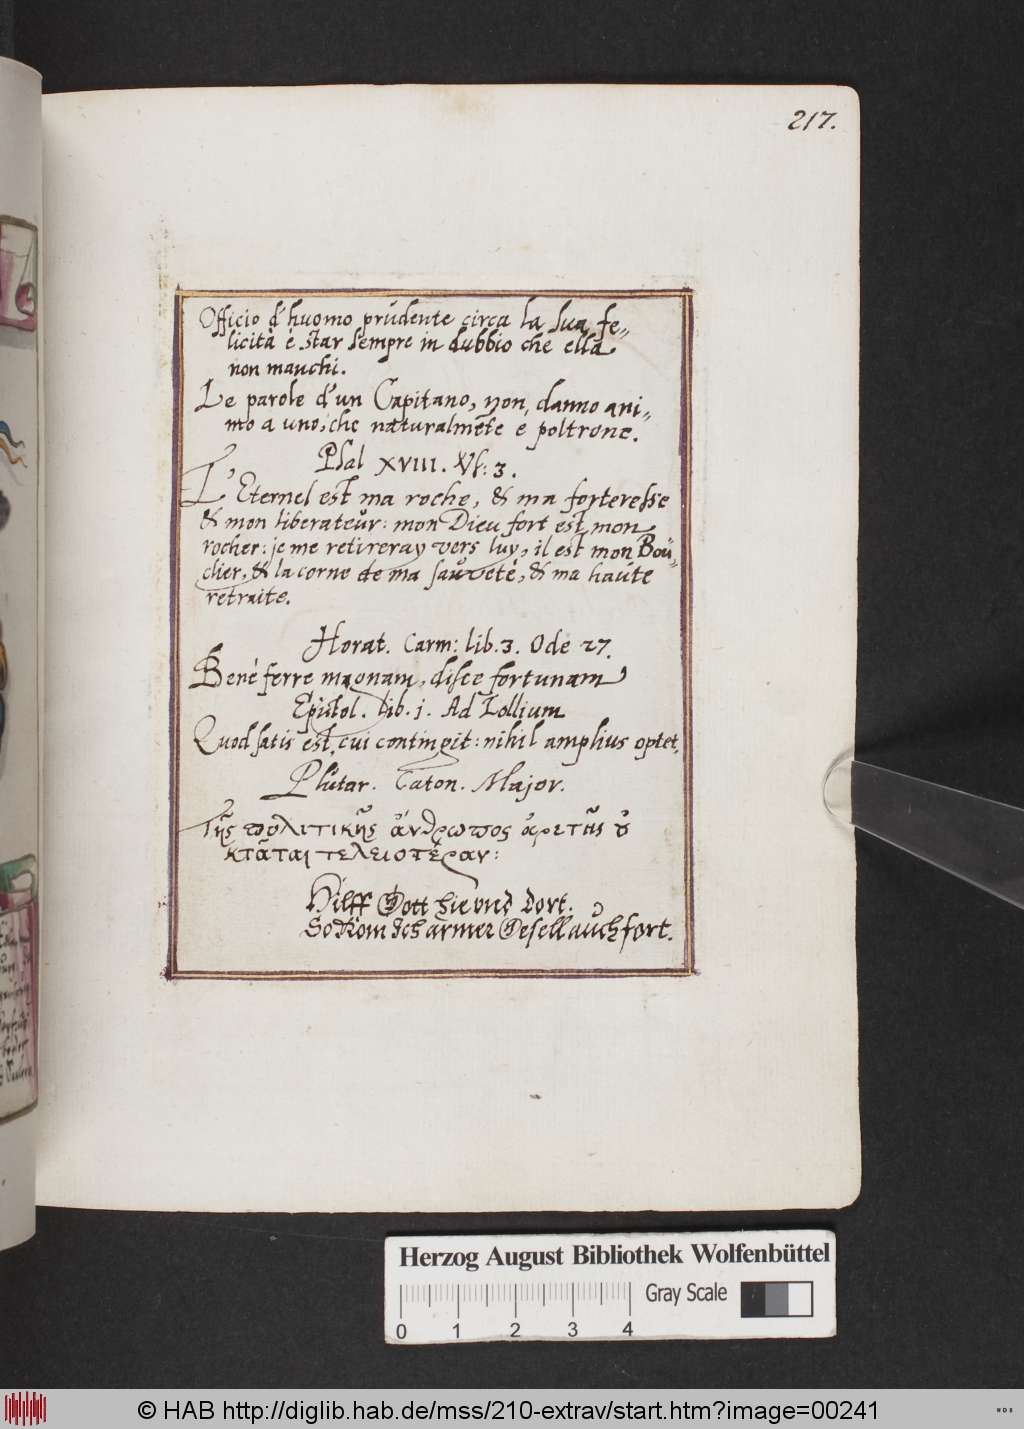 217.
Officio d'huomo prudente circa la sua fe„
licità è star sempre in dubbio che ella
non manchi.
Le parole d'un Capitano, non danno ani„
mo a uno, che naturalmẽte e poltrone.
Psal XVIII. Vs: 3.
L'Eternel est ma roche, & ma forteresse
& mon liberateur: mon Dieu fort est mon
rocher: je me retireray vers luy, il est mon Bou„
clier, & la corne de ma sauveté, & ma haute
retraite.
Horat. Carm: lib. 3. Ode 27.
Bené ferre magnam, disce fortunam
Epistol. lib. j. Ad Lollium
Quod satis est, cui contingit: nihil amplius optet.
Plutar. Caton. Major.
Τῆς πολιτικῆς ἄνθρωπος ἀρετῆς ȣ
κτᾶται τελειοτέραν:
Hilff Gott hie vnd dort.
So kom Ich armer Gesell auch fort.
Herzog August Bibliothek Wolfenbüttel
Gray Scale
0 1 2 3 4
© HAB http://diglib.hab.de/mss/210-extrav/start.htm?image=00241